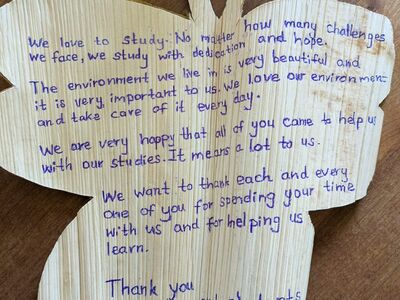 We love to study. No matter how many challenges
we face, we study with dedication and hope.
The environment we live in is very beautiful and
it is very important to us. We love our environment
and take care of it every day.
We are very happy that all of you came to help us
with our studies. It means a lot to us.
We want to thank each and every
one of you for spending your time
with us and for helping us
learn.
Thank you